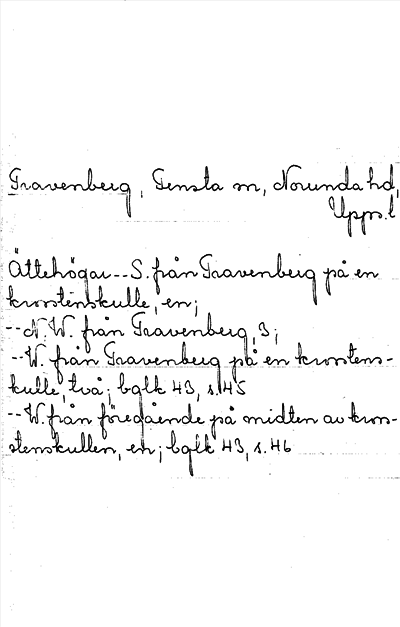 Gravenberg, Tensta sn, Norunda hd,
Upps. l
Ättehögar--S. från Gravenberg på en
krosstenskulle, en;
--N.W. från Gravenberg, 3;
--W. från Gravenberg på en krosstens-
kulle, två; bglk 43, s. 45
--W. från föregående på midten av kros-
stenskullen, en; bglk 43, s. 46